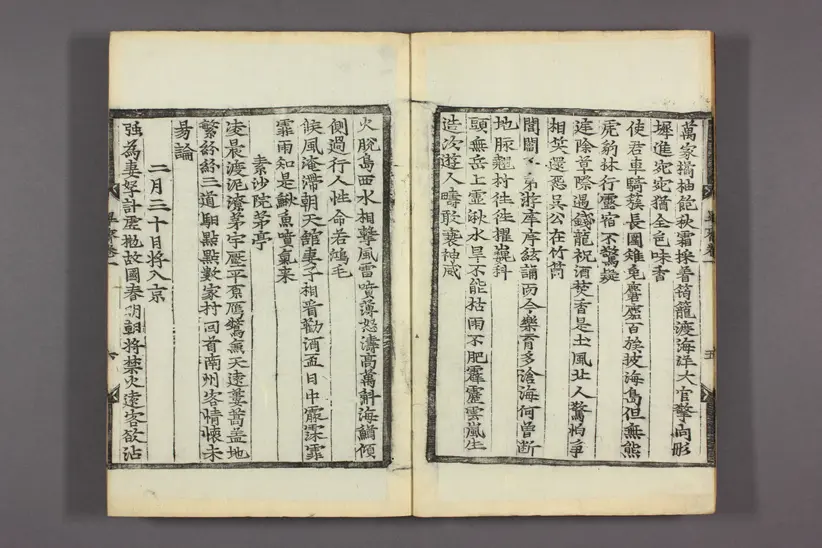 萬家橘柚飽秋霜採着筠籠渡海洋大官擎向彤
墀進宛宛猶全色味香
使君車騎簇長圍雉兎麏麚百族披海島但無熊
虎豹林行露宿不驚疑
庭除草際遇錢龍祝酒焚香是土風北人驚怕爭
相笑還怨吳公在竹筒
閭閻子弟游庠序絃誦而今樂育多滄海何曾斷
地脉翹材徃徃擢巍科
頭無岳上靈湫水旱不能枯雨不肥霹靂雲嵐生
造次遊人疇敢褻神威
火脫島西水相擊風雷噴薄怒濤高萬斛海鰌傾
側過行人性命若鴻毛
候風淹滯朝天館妻子相看勸酒盃日中霢霂霏
霏雨知是鰍魚噴氣來
素沙院茅亭
凌晨渡泥濘茅宇壓平原鴈鶩魚天遠蔞蒿盖地
繁紛紛三道馹點點數家村回首南州客情懷未
易論
二月三十日將入京
强為妻孥計虛抛故國春明朝將禁火遠客欲沾
五
六